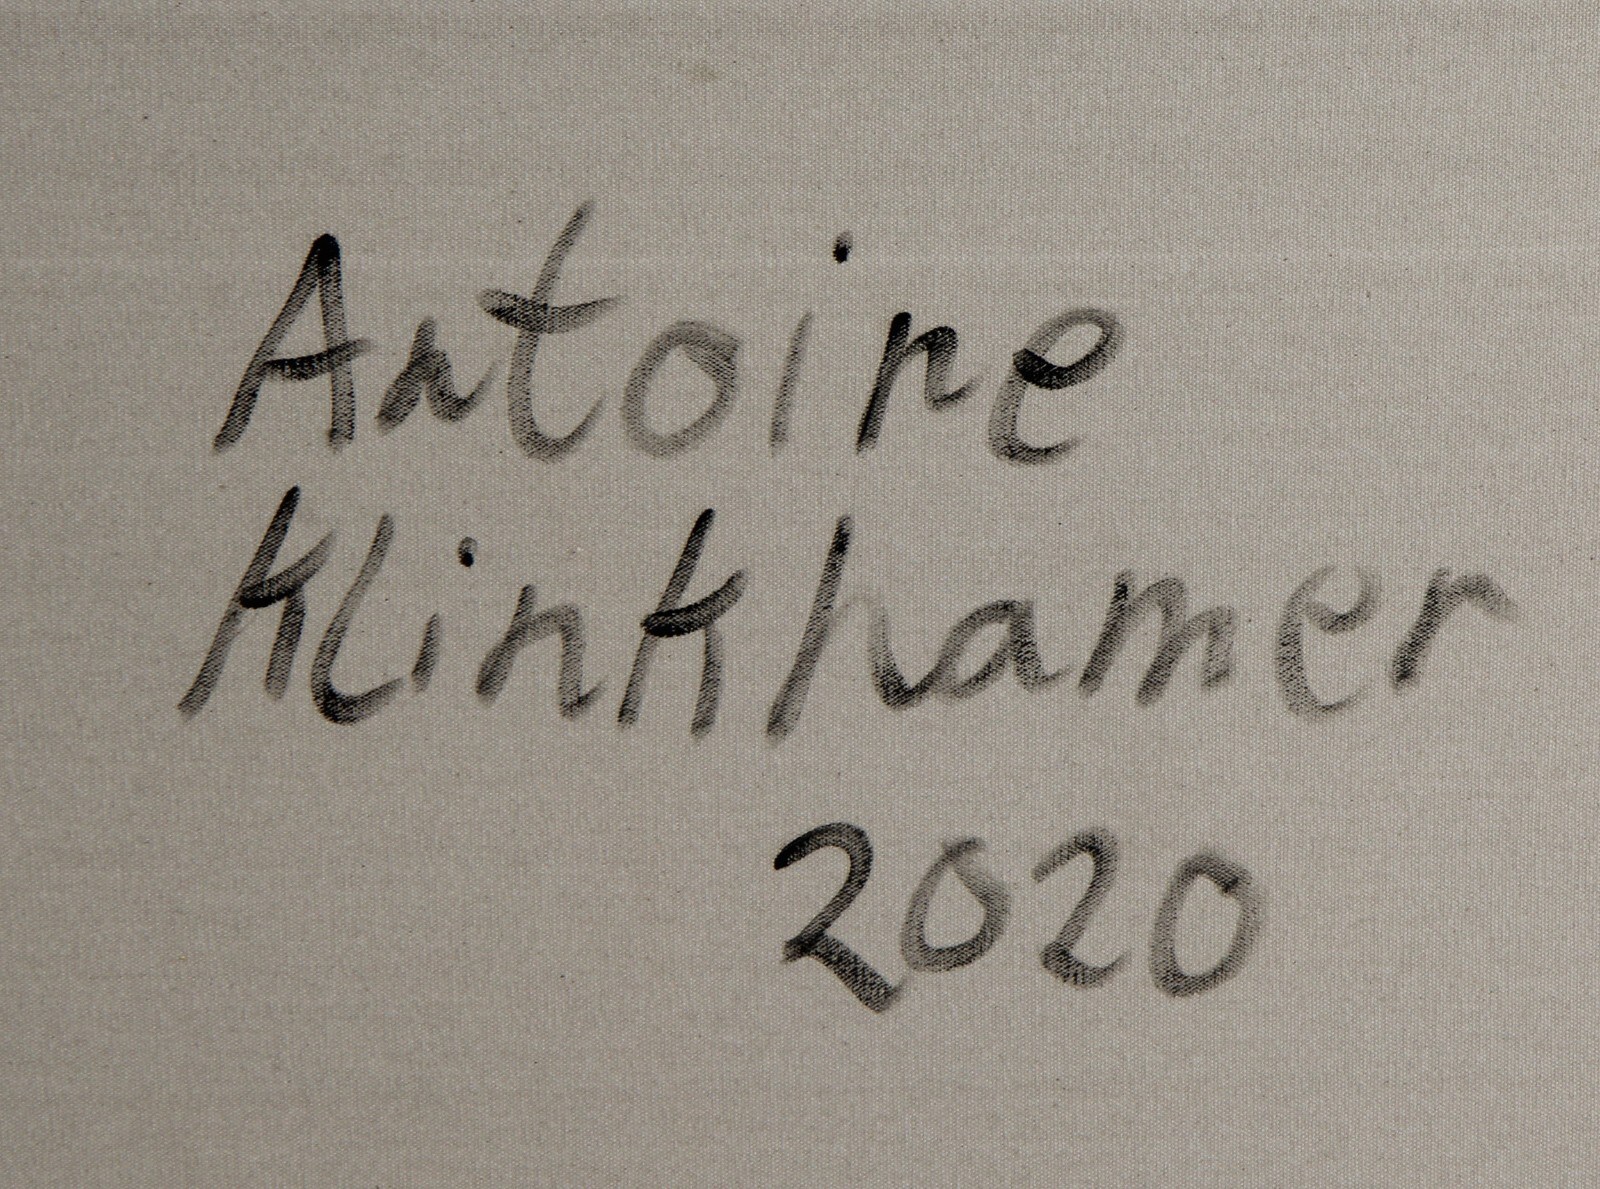 Antoine
Klinkhamer
2020